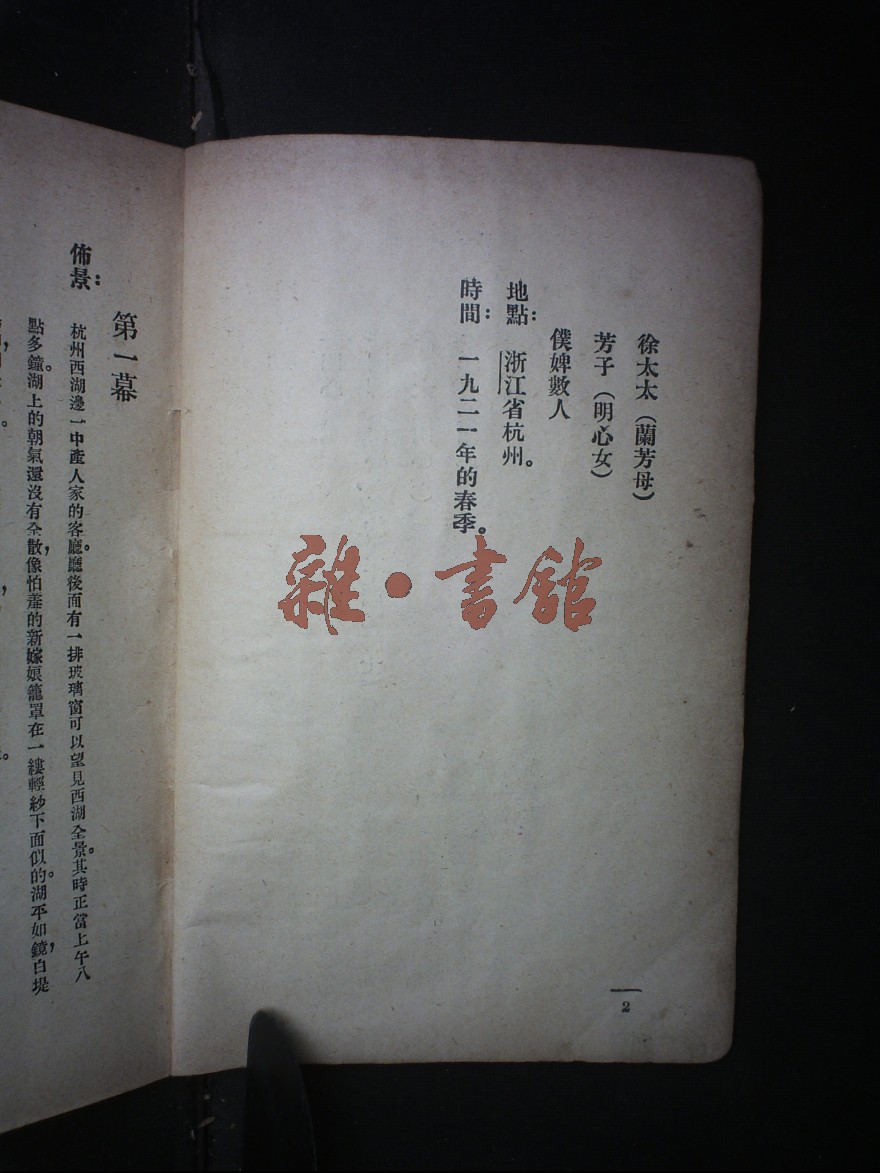 徐太太（蘭芳母）
芳子（明心女）
僕婢數人
地點：浙江省杭州。
時間：一九二一年的春季。
雜·書館
2
第一幕
佈景：杭州西湖邊一中產人家的客廳。廳後面有一排玻璃窗可以望見西湖全景。其時正當上午八
點多鐘。湖上的朝氣還沒有全散，像怕羞的新嫁娘籠罩在一縷輕紗下面似的。湖平如鏡，白堤